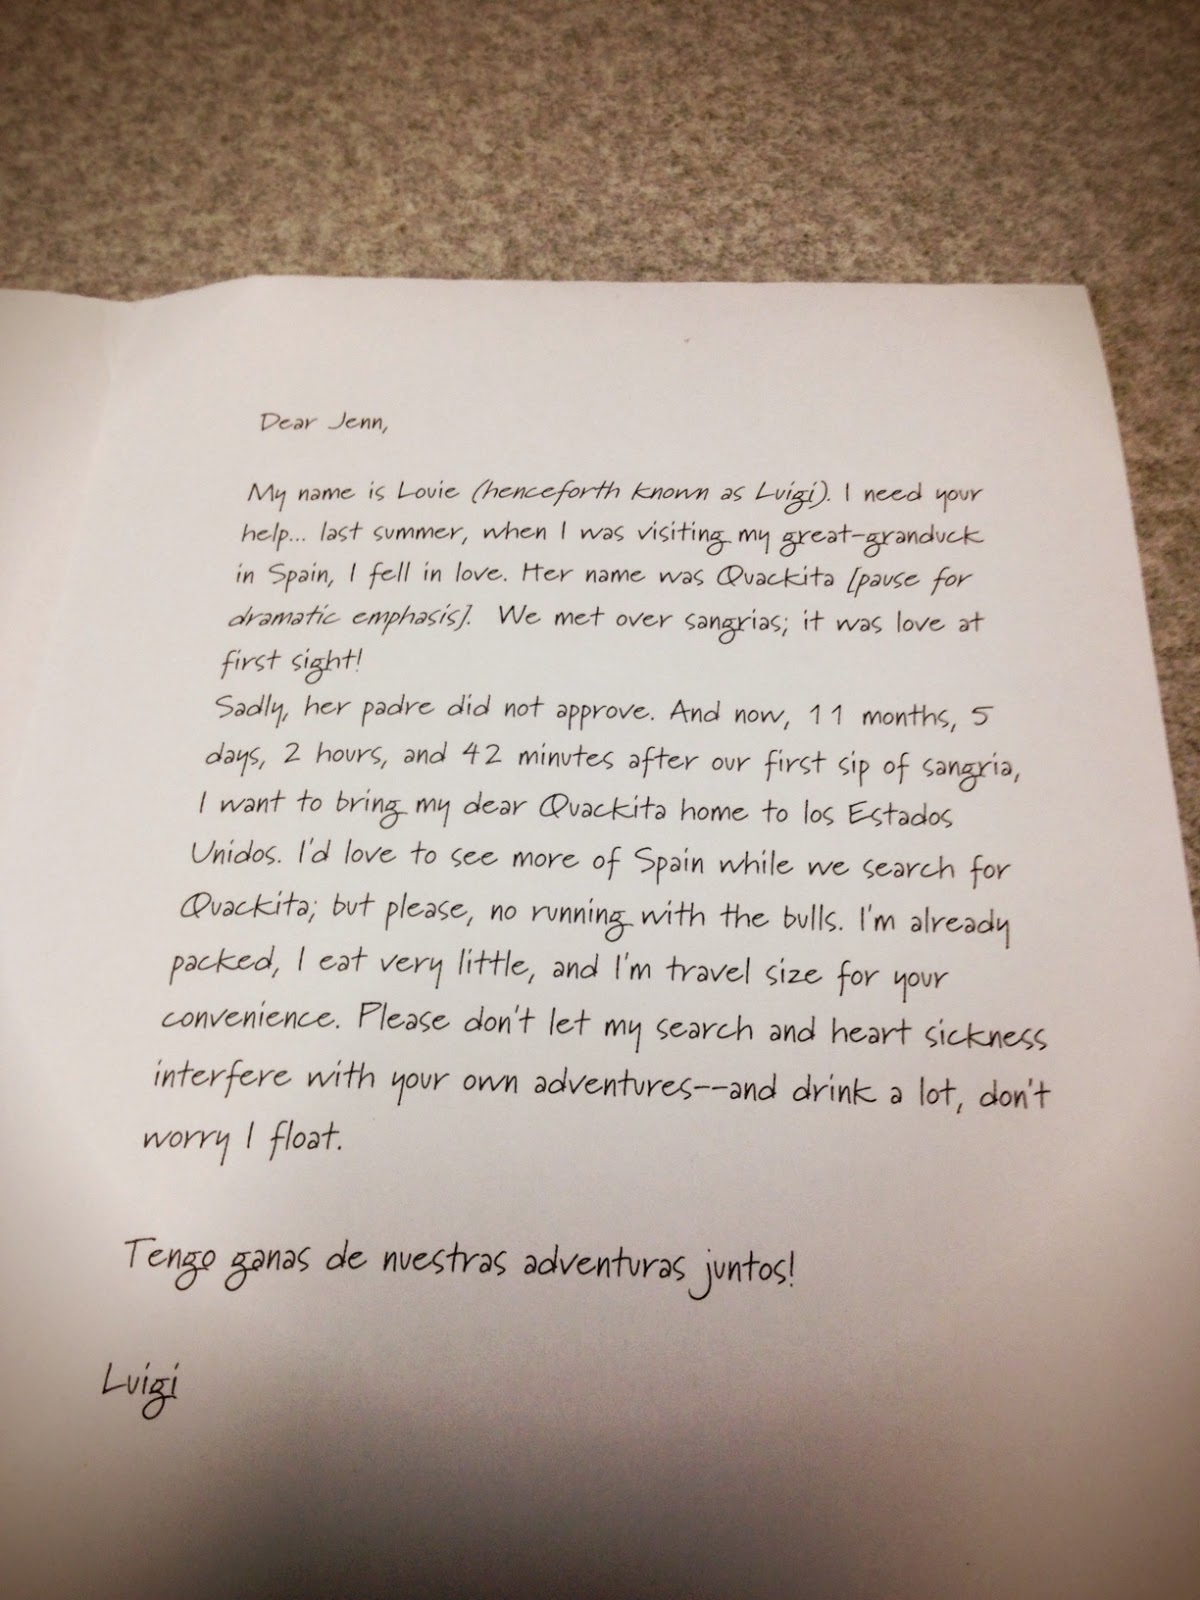 Dear Jenn,
My name is Louie (henceforth known as Luigi). I need your
help... last summer, when I was visiting my great-granduck
in Spain, I fell in love. Her name was Quackita [pause for
dramatic emphasis]. We met over sangrias; it was love at
first sight!
Sadly, her padre did not approve. And now, 11 months, 5
days, 2 hours, and 42 minutes after our first sip of sangria,
I want to bring my dear Quackita home to los Estados
Unidos. I'd love to see more of Spain while we search for
Quackita; but please, no running with the bulls. I'm already
packed, I eat very little, and I'm travel size for your
convenience. Please don't let my search and heart sickness
interfere with your own adventures--and drink a lot, don't
worry I float.
Tengo ganas de nuestras adventuras juntos!
Luigi